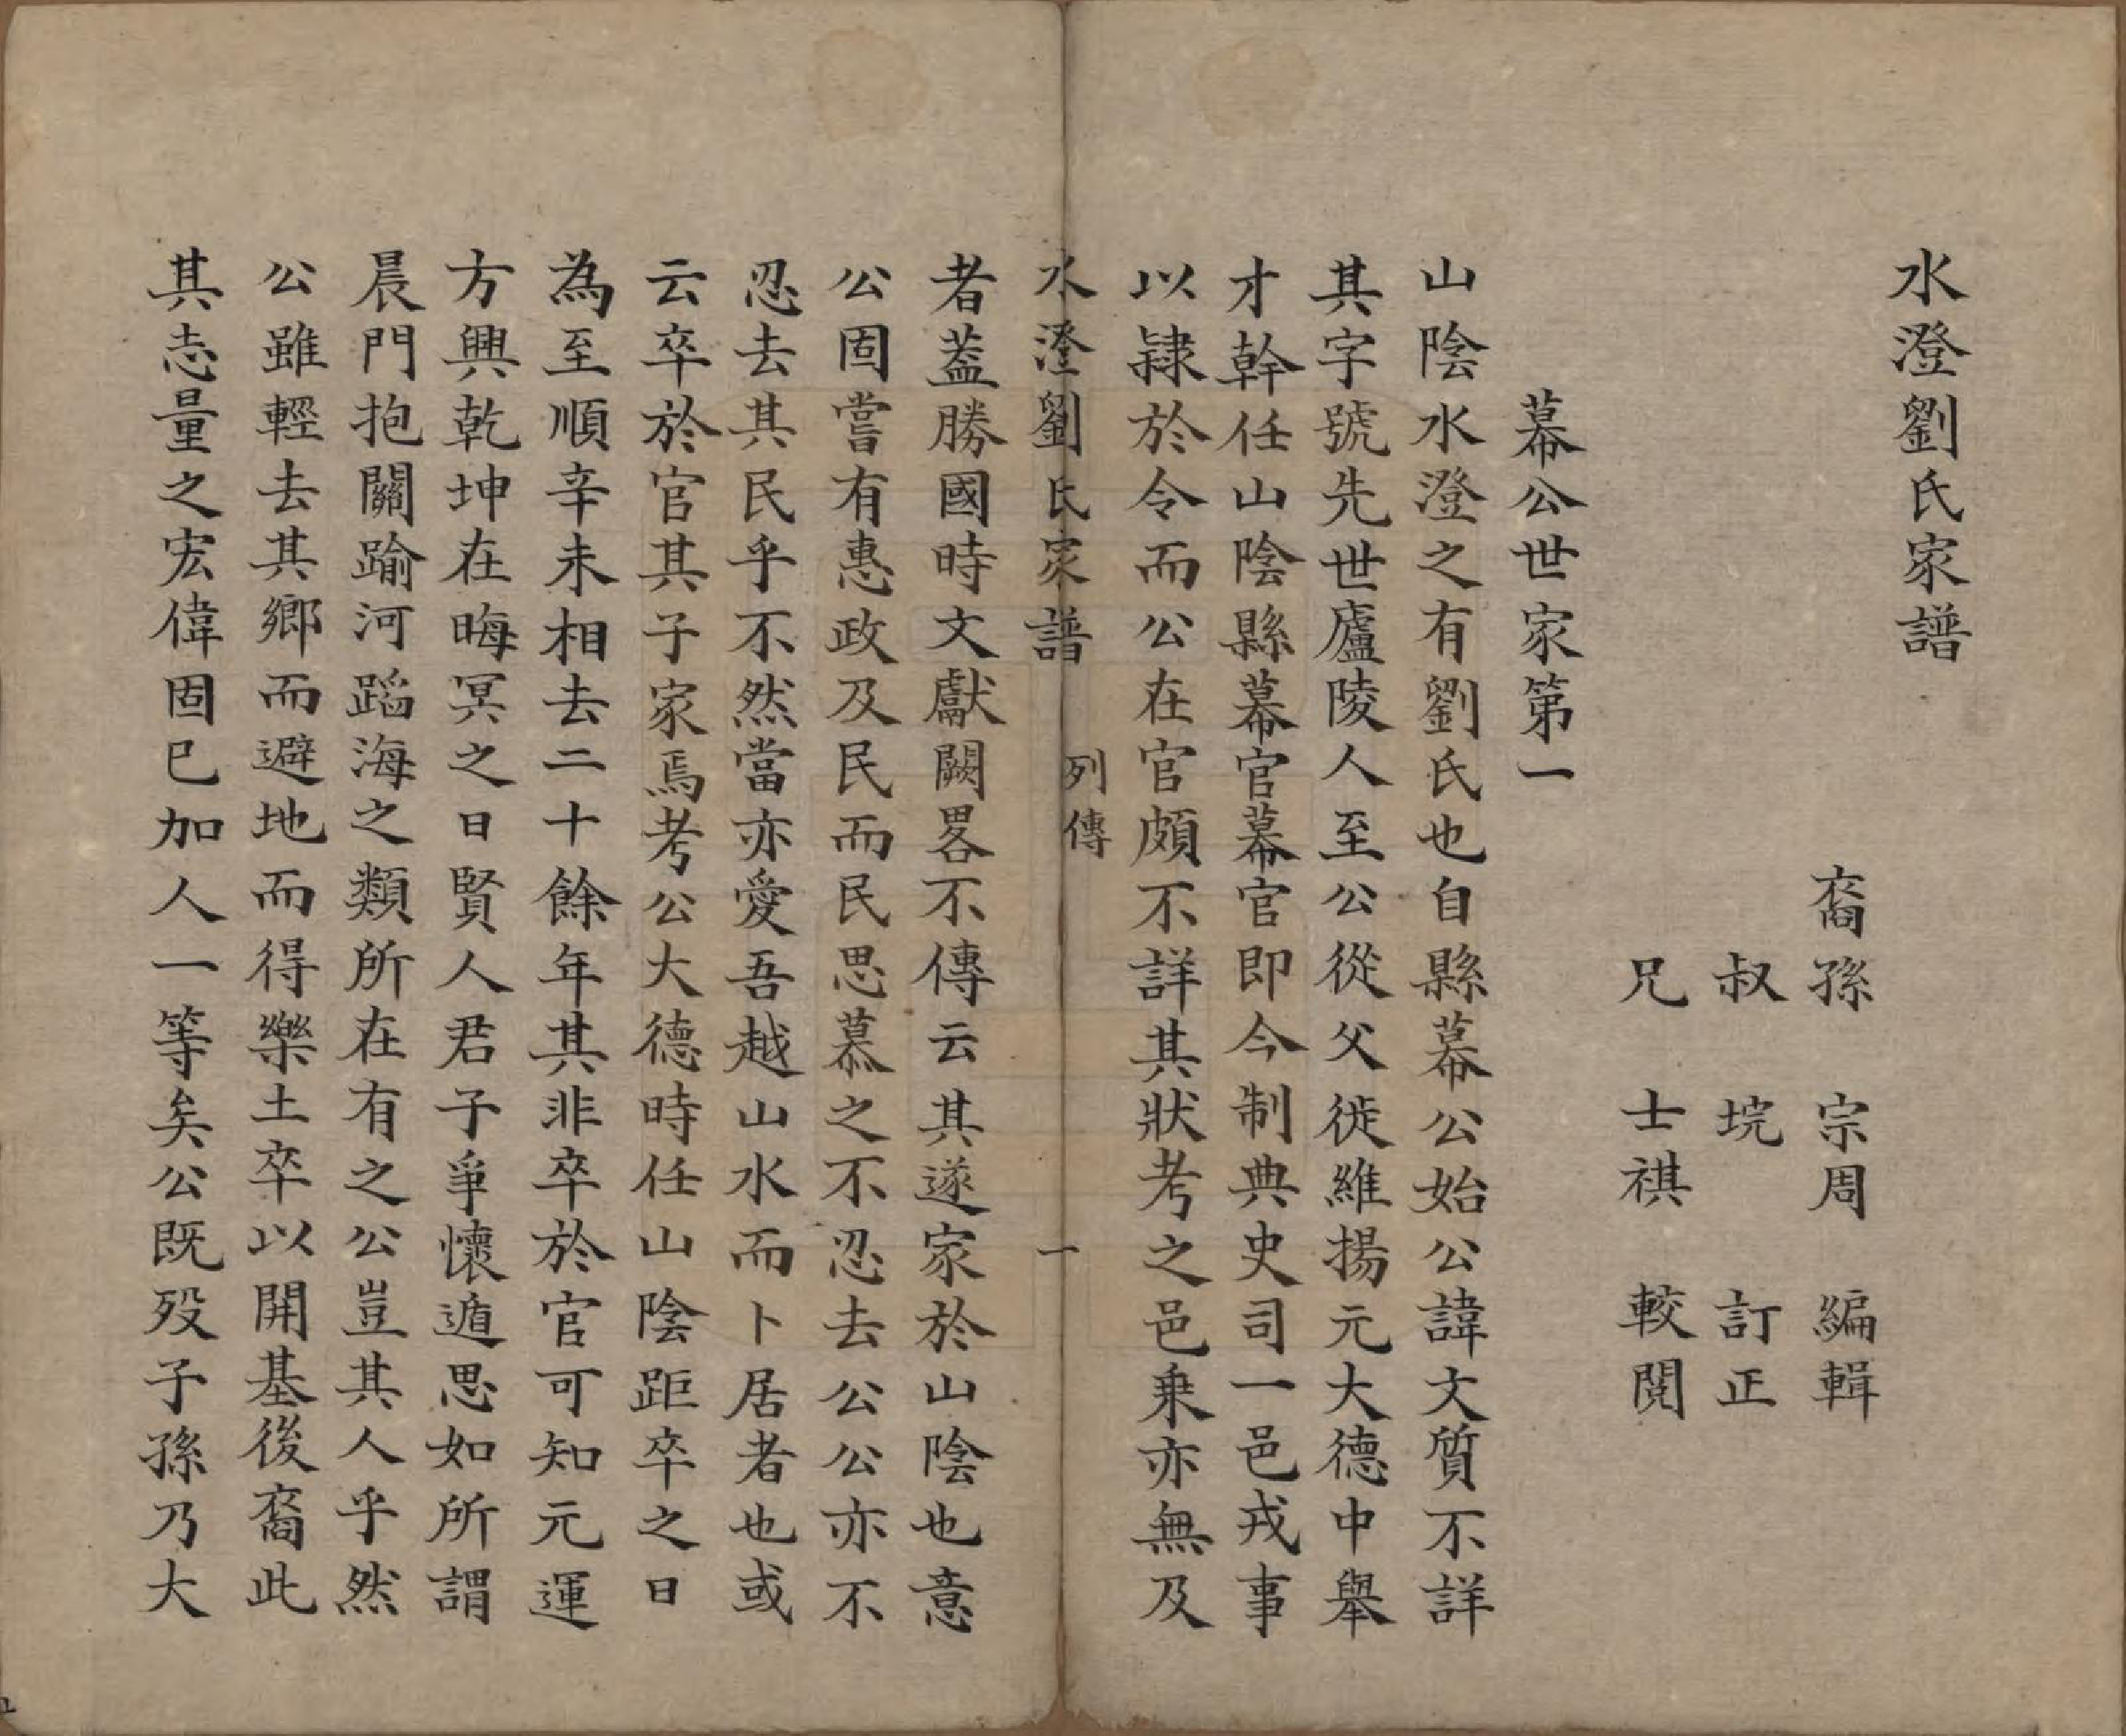 水澄劉氏家譜
裔孫 宗周 編輯
叔 垸 訂正
兄 士祺 較閱
幕公世家第一
山陰水澄之有劉氏也自縣幕公始公諱文質不詳
其字號先世廬陵人至公從父徙維揚元大德中舉
才幹任山陰縣幕官幕官即今制典史司一邑戎事
以隷於令而公在官頗不詳其狀考之邑乗亦無及
水澄劉氏家譜 列傳 一
者葢勝國時文獻闕畧不傳云其遂家於山陰也意
公固嘗有惠政及民而民思慕之不忍去公公亦不
忍去其民乎不然當亦愛吾越山水而卜居者也或
云卒於官其子家焉考公大德時任山陰距卒之日
為至順辛未相去二十餘年其非卒於官可知元運
方興乾坤在晦冥之日賢人君子爭懷遁思如所謂
晨門抱關踰河蹈海之類所在有之公豈其人乎然
公雖輕去其鄉而避地而得樂土卒以開基後裔此
其志量之宏偉固已加人一等矣公既殁子孫乃大